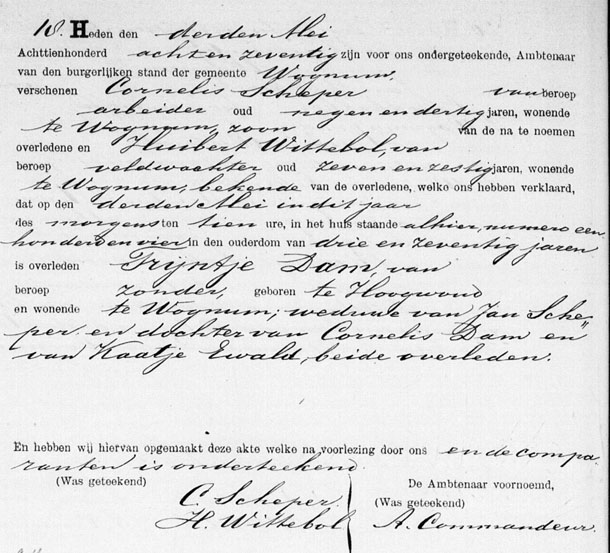 18. Heden den derden Mei
Achttienhonderd acht en zeventig zijn voor ons ondergeteekende, Ambtenaar
van den burgerlijken stand der gemeente Wognum.
verschenen Cornelis Scheper van beroep
arbeider oud negen en dertig jaren, wonende
te Wognum, zoon van de na te noemen
overledene en Huibert Wittebol, van
beroep veldwachter oud zeven en zestig jaren, wonende
te Wognum; bekende van de overledene, welke ons hebben verklaard,
dat op den derden Mei in dit jaar
des morgens ten tien ure, in het huis staande alhier, numero een
honderd en vier in den ouderdom van drie en zeventig jaren
is overleden Trijntje Dam, van
beroep zonder, geboren te Hoogwoud
en wonende te Wognum; weduwe van Jan Sche=
per en dochter van Cornelis Dam en
van Kaatje Ewald, beide overleden.
En hebben wij hiervan opgemaakt deze akte welke na voorlezing door ons en de compa=
ranten is onderteekend.
(Was geteekend) De Ambtenaar voornoemd,
C. Scheper. (Was geteekend)
H. Wittebol A. Commandeur.